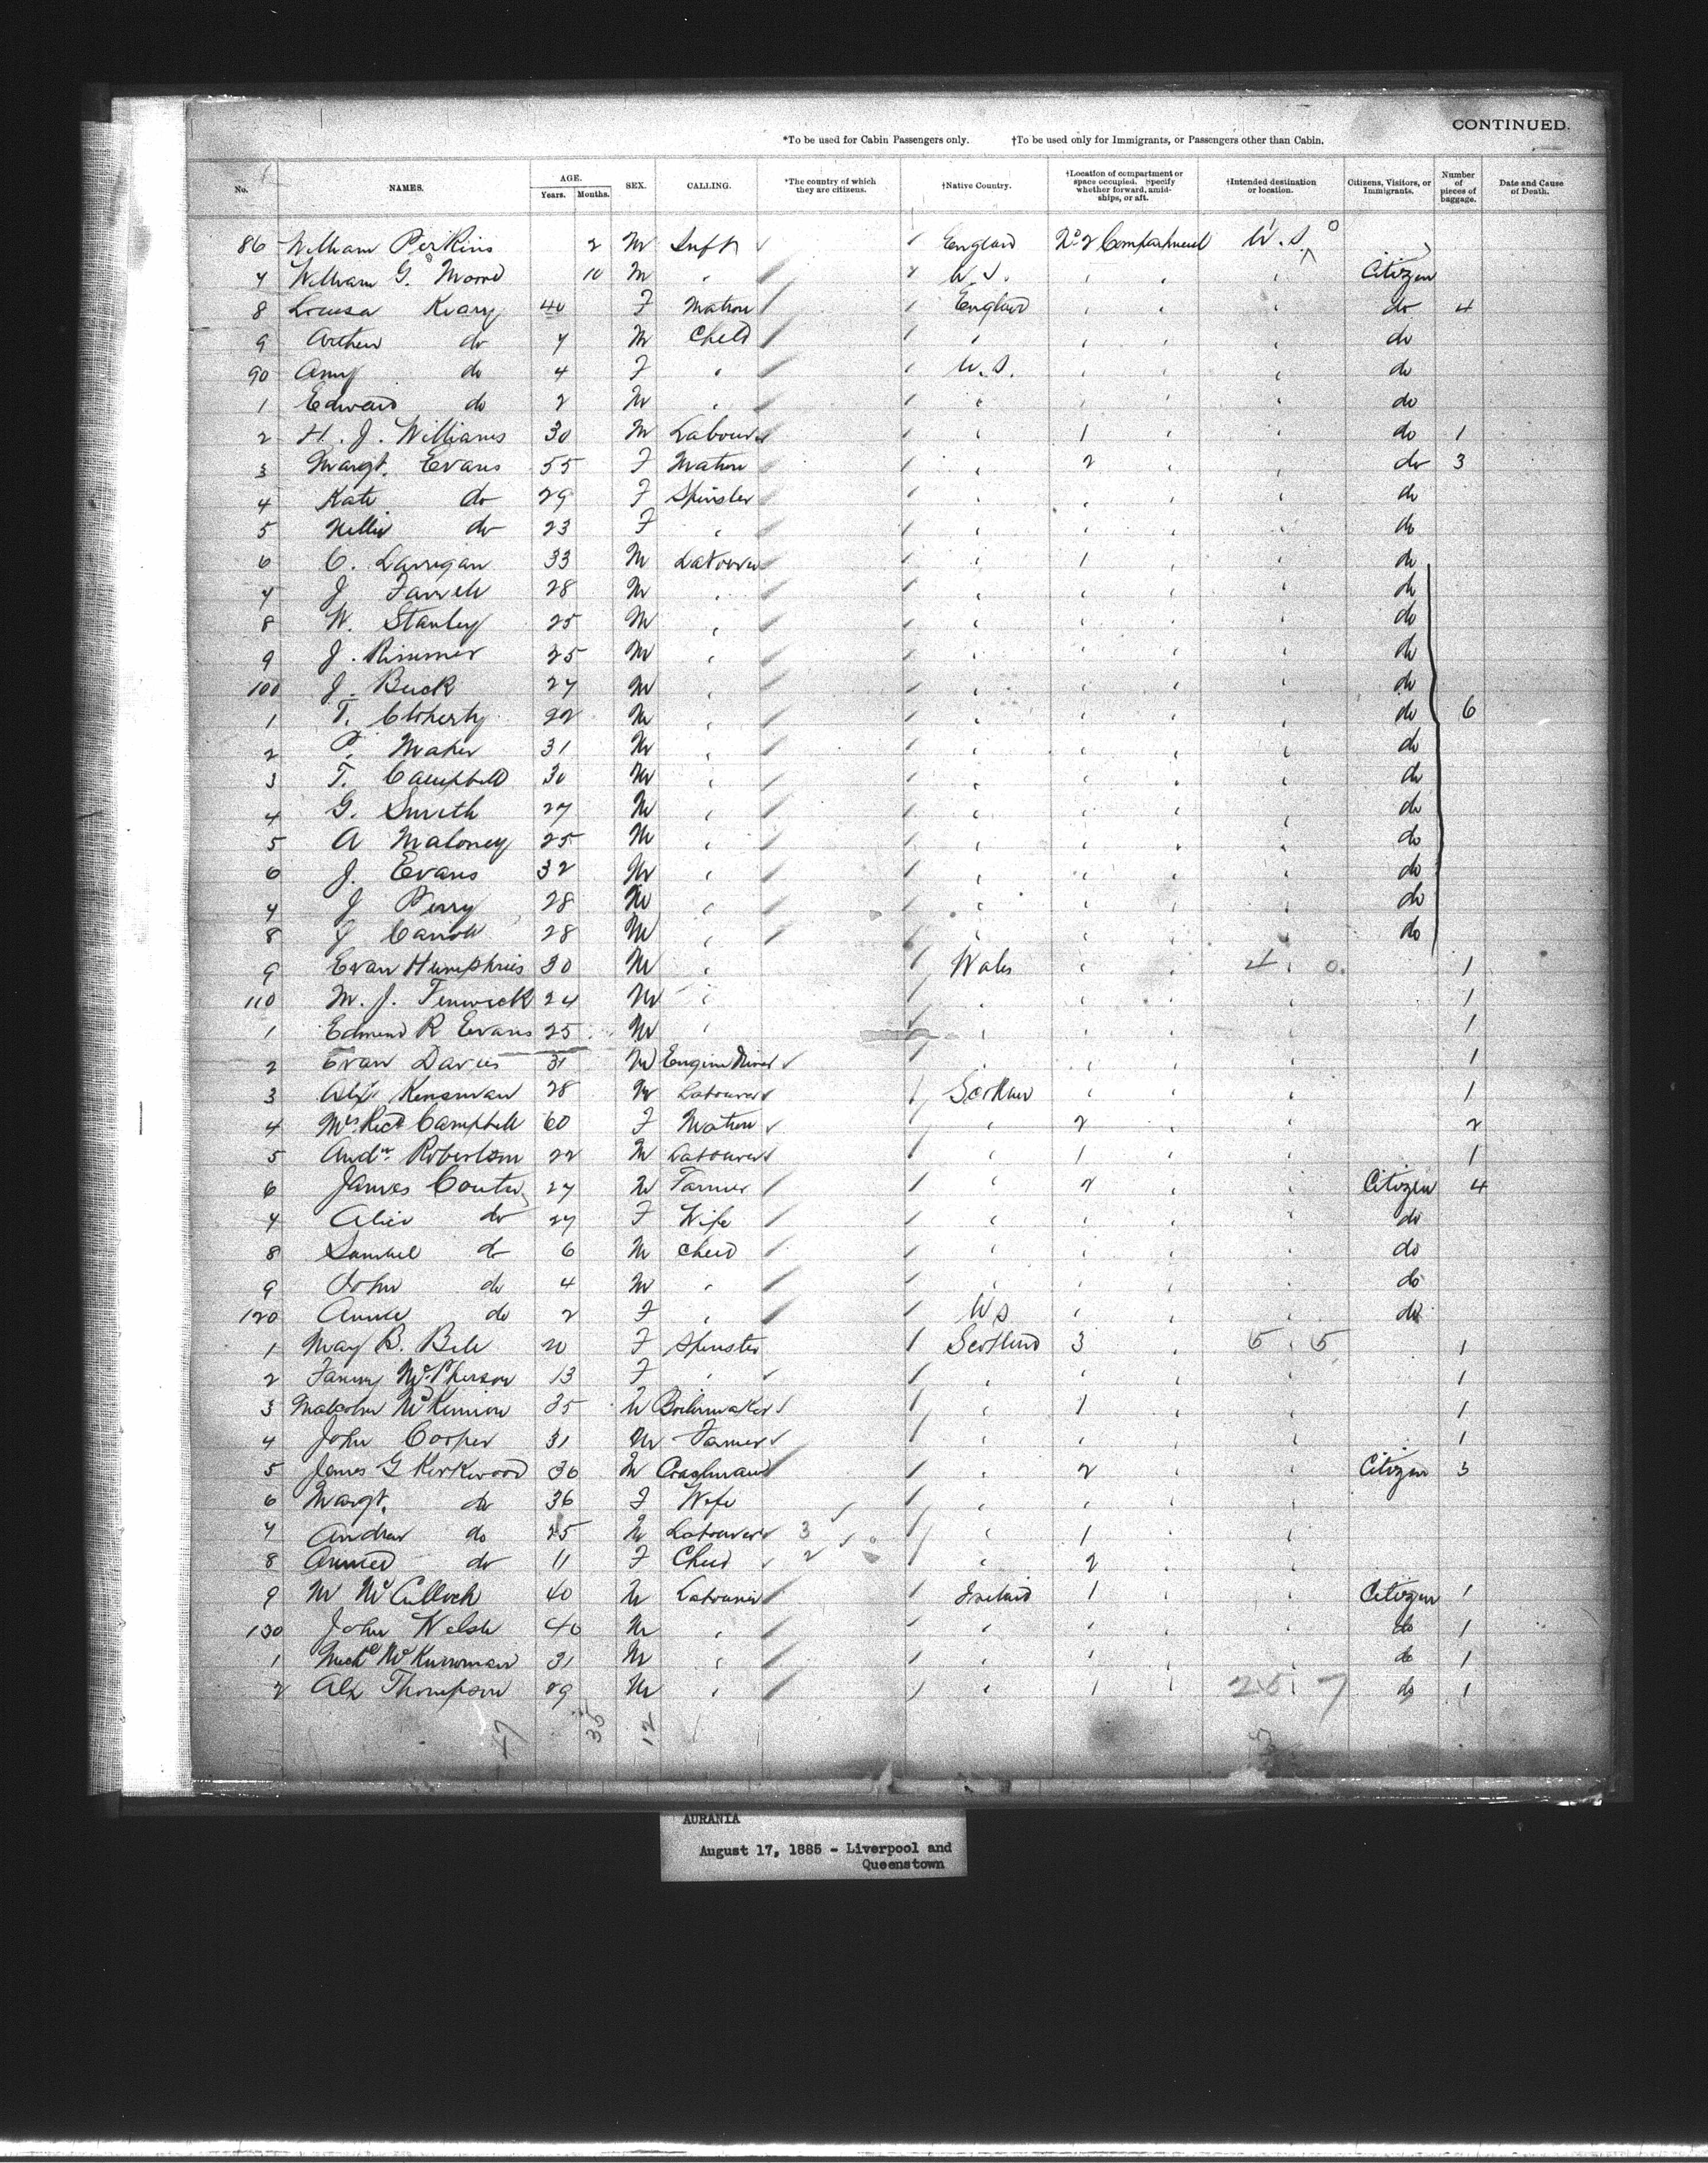 CONTINUED.
*To be used for Cabin Passengers only. †To be used only for Immigrants, or Passengers other than Cabin.
No. NAMES. AGE. Years. Months. SEX. CALLING. *The country of which they are citizens. †Native Country. †Location of compartment or space occupied. Specify whether forward, amidships, or aft. †Intended destination or location. Citizens, Visitors, or Immigrants. Number of pieces of baggage. Date and Cause of Death.
86 William Perkins 2 M Inft England No 2 Compartment U.S. 0
7 William G. Moore 10 M " U.S. " " " Citizen
8 Louisa Keary 40 F Matron England " " " do 4
9 Arthur do 7 M Child " " " " do
90 Amy do 4 F " U.S. " " " do
1 Edward do 2 M " " " " " do
2 H. J. Williams 30 M Labourer " 1 " " do 1
3 Margt. Evans 55 F Matron " 2 " " do 3
4 Kate do 29 F Spinster " " " " do
5 Nellie do 23 F " " " " " do
6 C. Larrigan 33 M Labourer " 1 " " do
7 J Farrell 28 M " " " " " do
8 W. Stanley 25 M " " " " " do
9 J. Rimmer 25 M " " " " " do
100 J. Buck 27 M " " " " " do
1 T. Cloherty 22 M " " " " " do 6
2 P. Maher 31 M " " " " " do
3 T. Campbell 30 M " " " " " do
4 G. Smith 27 M " " " " " do
5 A Maloney 25 M " " " " " do
6 J. Evans 32 M " " " " " do
7 J Perry 28 M " " " " " do
8 J Carroll 28 M " " " " " do
9 Evan Humphries 30 M " Wales " " 4 " 0 1
110 M. J. Fenwick 24 M " " " " " 1
1 Edmund R Evans 25 M " " " " " 1
2 Evan Davies 31 M Engine Driver " " " " 1
3 Alex Kinsman 28 M Labourer Scotland " " " 1
4 Mrs Richd Campbell 60 F Matron " 2 " 2
5 Andw. Robertson 22 M Labourer " 1 " " 1
6 James Coutts 27 M Farmer " 2 " " Citizen 4
7 Alice do 27 F Wife " " " " do
8 Samuel do 6 M Child " " " " do
9 John do 4 M " " " " " do
120 Annie do 2 F " US " " " do
1 May B. Bell 20 F Spinster Scotland 3 " 5 " 5 1
2 Fanny McPherson 13 F " " " " " 1
3 Malcolm McKinnon 35 M Boilermaker " 1 " " 1
4 John Cooper 31 M Farmer " " " " 1
5 James G Kirkwood 36 M Coachman " 2 " " Citizen 3
6 Margt. do 36 F Wife " " " "
7 Andrew do 25 M Labourer 3 " 1 " "
8 Annie do 11 F Child 2 " 2 " "
9 M McCulloch 40 M Labourer Ireland 1 " " Citizen 1
130 John Welsh 40 M " " " " " do 1
1 M " " " " " do 1
2 Alex Thompson 29 M " " 1 " 25 " 7 do 1
47 35 12
AURANIA
August 17, 1885 - Liverpool and
Queenstown